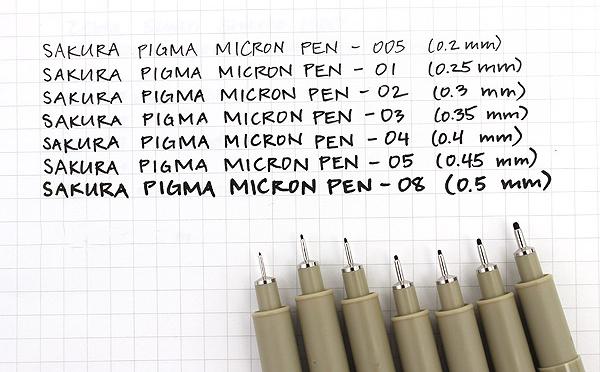 SAKURA PIGMA MICRON PEN - 005 (0.2 mm)
SAKURA PIGMA MICRON PEN - 01 (0.25 mm)
SAKURA PIGMA MICRON PEN - 02 (0.3 mm)
SAKURA PIGMA MICRON PEN - 03 (0.35 mm)
SAKURA PIGMA MICRON PEN - 04 (0.4 mm)
SAKURA PIGMA MICRON PEN - 05 (0.45 mm)
SAKURA PIGMA MICRON PEN - 08 (0.5 mm)